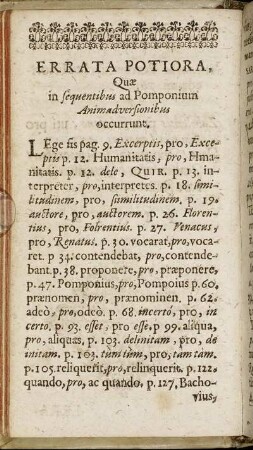 ERRATA POTIORA.
Quæ
in sequentibus ad Pomponium
Animadversionibus
occurrunt.
LEge sis pag. 9. Excerptis, pro, Exce-
ptis p. 12. Humanitatis, pro, Hma-
nitatis. p. 12. dele, QUIR. p. 13. in-
terpreter, pro, interpretes. p. 18. simi-
litudinem, pro, similitudinem. p. 19.
auctore, pro, auctorem. p. 26. Floren-
tius, pro, Folrentius. p. 27. Venacus,
pro, Renatus. p. 30. vocarat, pro, voca-
ret. p 34. contendebat, pro, contende-
bant. p. 38. proponere, pro, præponere,
p. 47. Pomponius, pro, Pompoius p. 60.
prænomen, pro, prænominen. p. 62.
adeò, pro, odeò. p. 68. incertò, pro, in
certo. p. 93. esset, pro esse, p 99. aliqua,
pro, aliquas. p. 103. delinitam, pro, de
initam. p. 103. tum tùm, pro, tam tam.
p. 105. reliquerit, pro, relinquerit. p. 122.
quando, pro, ac quando. p. 127. Bacho-
vius,